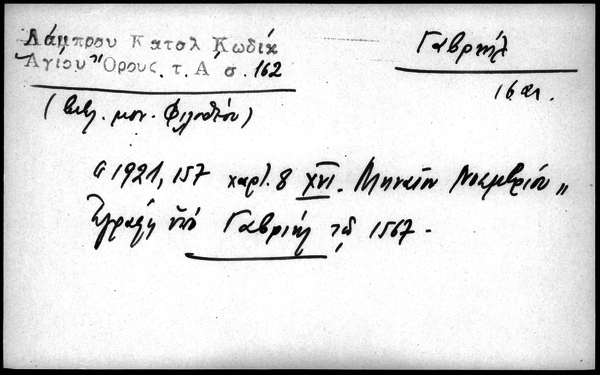 Λάμπρου Κατσλ Κωδίκ
Ἁγίου Ὄρους. τ. Α΄ σ. 162
Γαβριήλ
16 αι.
(Βιβλ. μον. Φιλοθέου)
1921, 157 χαρτ. 8 XVI. Μηναῖον Νοεμβρίου „
Ἐγράφη ὑπὸ Γαβριήλ τῷ 1567.